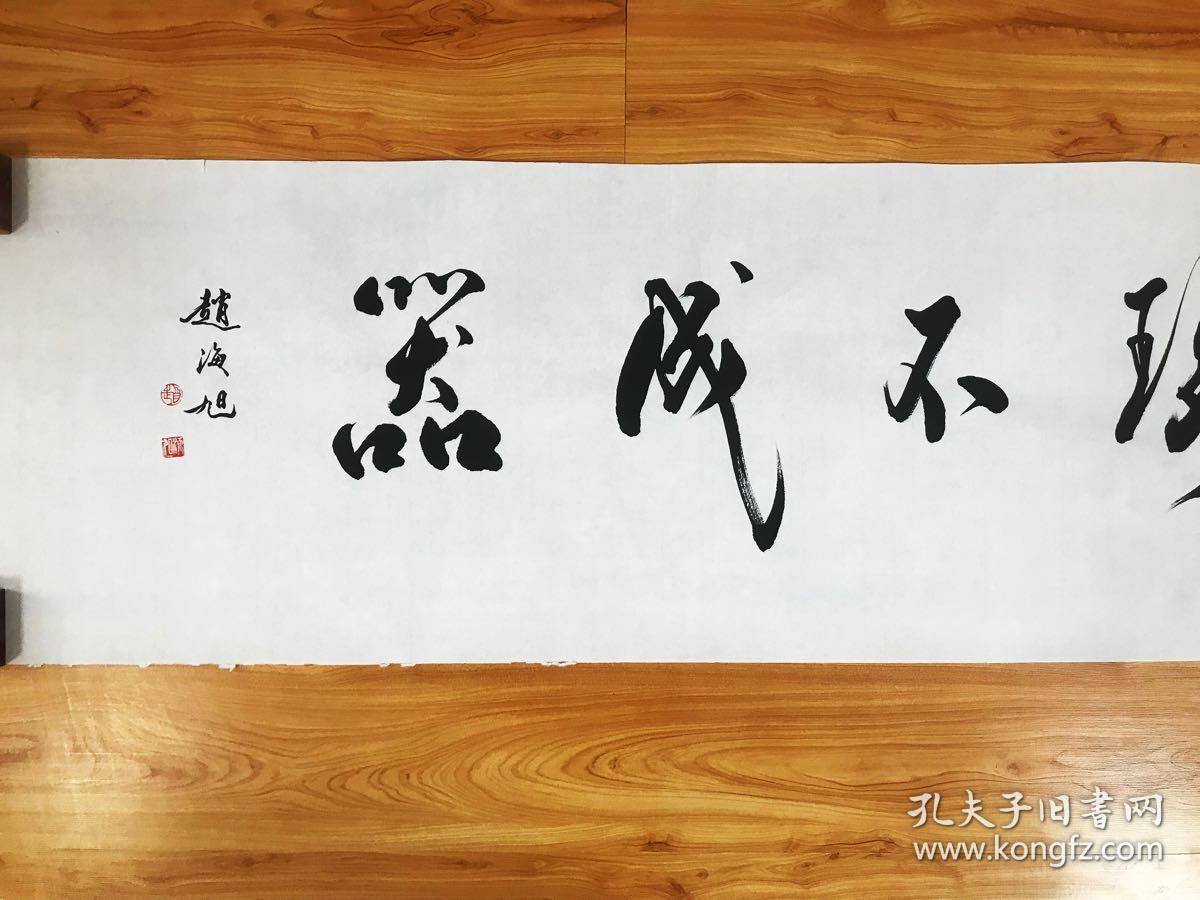 不成器
趙海旭
孔夫子旧書网
www.kongfz.com